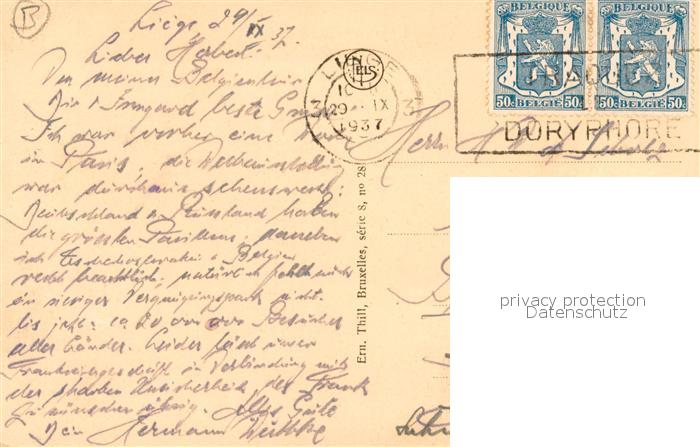 Liège 29/IX 37.
Lieber Hubert.
Von meiner Belgienreise
Dir & Irmgard beste Grüße
Ich war vorher eine Woche
in Paris, die Weltausstellung
war durchaus sehenswert:
Deutschland & Russland hatten
die grössten Pavillons, daneben
sich Tschechoslowakei & Belgien
recht beachtlich, natürlich fehlt auch
ein riesiger Vergnügungspark nicht.
bis jetzt: ca 20 000 000 Besucher
aller Länder. Leider lässt unser
Frankreichgeschäft in Verbindung mit
der starken Unsicherheit des Frank
zu wünschen übrig. Alles Gute
Dein Hermann
LIEGE
10
29 IX
1937
3 3
BELGIQUE
50c BELGIË 50c
BELGIQUE
50c BELGIË 50c
DORYPHORE
Herrn H
Ern. Thill, Bruxelles, série 8, no 28
privacy protection
Datenschutz